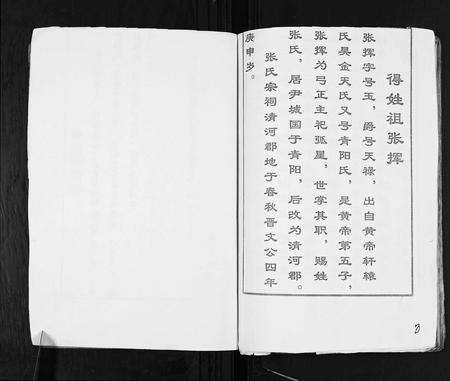 得姓祖张挥
张挥字号玉，爵号天禄，出自黄帝轩辕
氏昊金天氏又号青阳氏，是黄帝第五子，
张挥为弓正主祀弧星，世掌其职，赐姓
张氏，居尹城国于青阳，后改为清河郡。
张氏宗祠清河郡地于春秋晋文公四年
庚申岁。
3